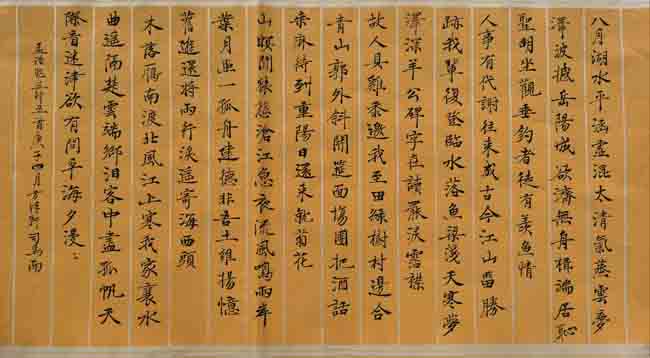 八月湖水平涵虛混太清氣蒸雲夢
澤波撼岳陽城欲濟無舟楫端居恥
聖明坐觀垂釣者徒有羨魚情
人事有代謝往來成古今江山留勝
跡我輩復登臨水落魚梁淺天寒夢
澤深羊公碑字在讀罷淚霑襟
故人具雞黍邀我至田綠樹村邊合
青山郭外斜開筵面場圃把酒話
桑麻待到重陽日還來就菊花
山暝聞猿愁滄江急夜流風鳴兩岸
葉月照一孤舟建德非吾土維揚憶
舊遊還將兩行淚遙寄海西頭
木落雁南渡北風江上寒我家襄水
曲遙隔楚雲端鄉淚客中盡孤帆天
際看迷津欲有問平海夕漫〻
孟浩然五律五首庚子四月